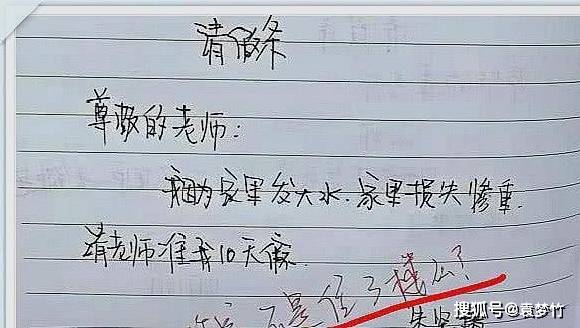 请假条
尊敬的老师：
我因为家里发大水.家里损失惨重.
请老师准我10天假.
不是住3楼么？
搜狐号@袁梦竹